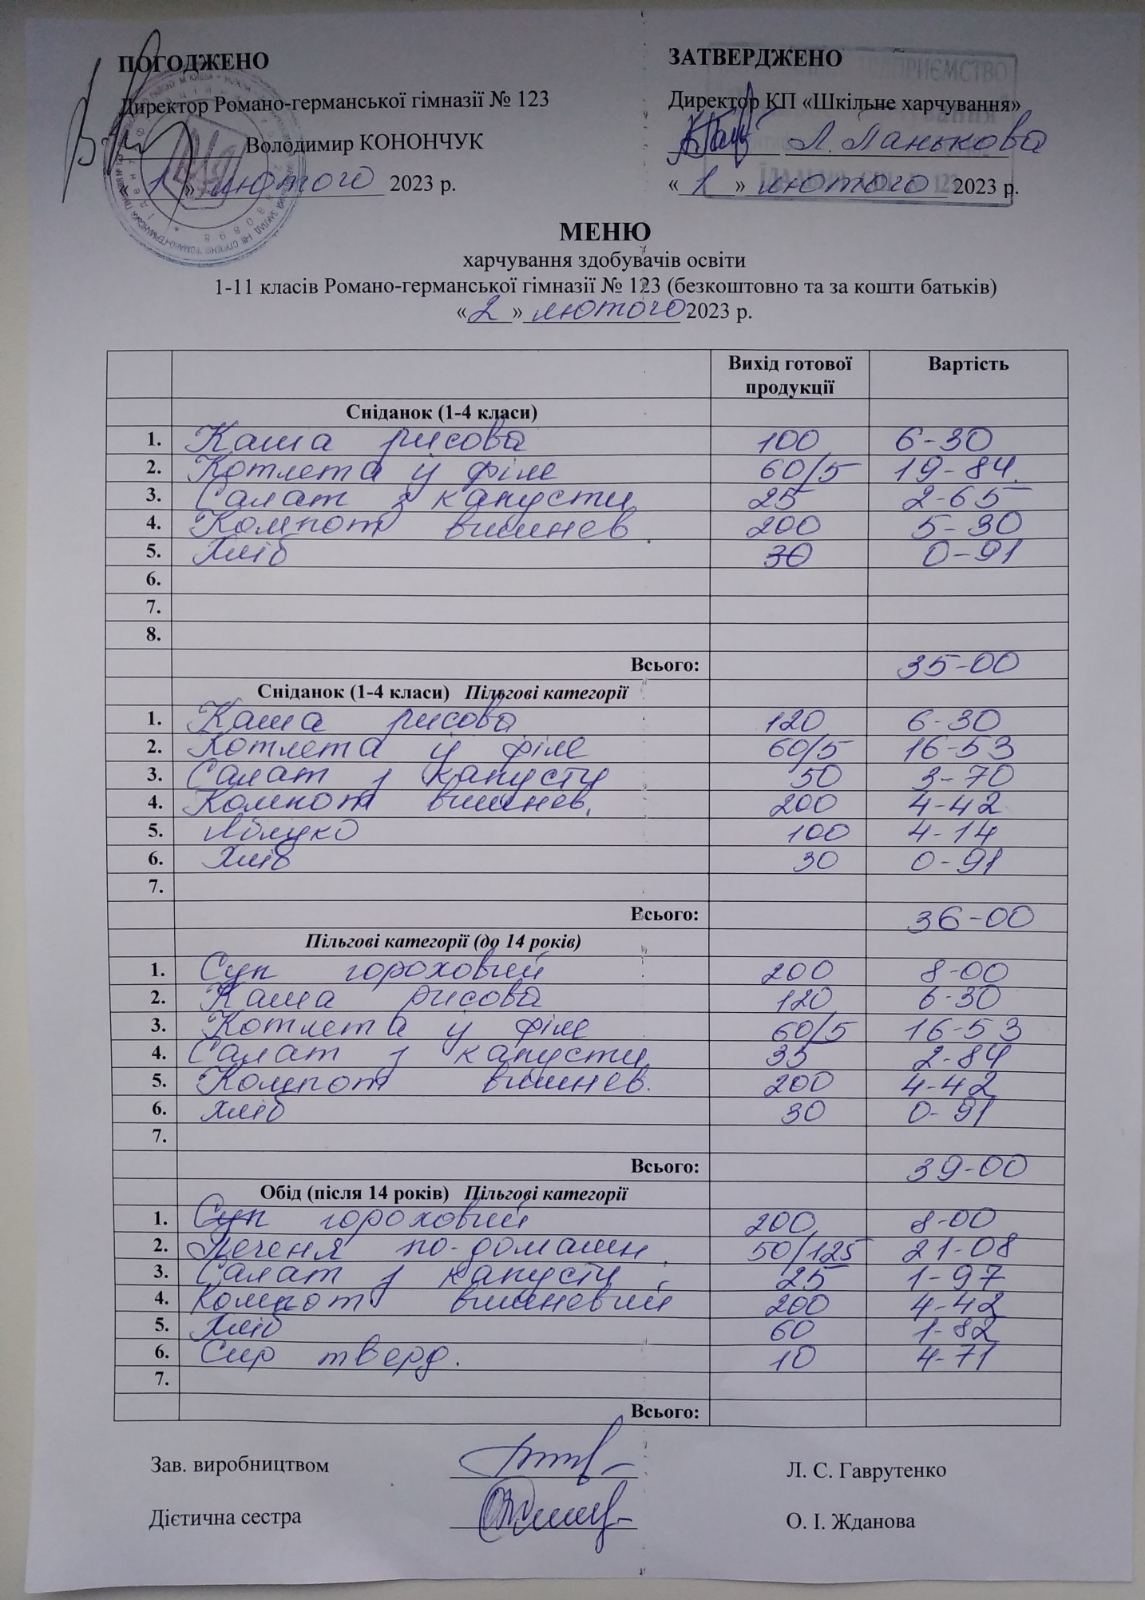 ПОГОДЖЕНО
Директор Романо-германської гімназії № 123
Володимир КОНОНЧУК
« 1 » лютого 2023 р.
ЗАТВЕРДЖЕНО
Директор КП «Шкільне харчування»
Л. Панькова
« 1 » лютого 2023 р.
МЕНЮ
харчування здобувачів освіти
1-11 класів Романо-германської гімназії № 123 (безкоштовно та за кошти батьків)
« 2 » лютого 2023 р.
Вихід готової продукції Вартість
Сніданок (1-4 класи)
1. Каша рисова 100 6-30
2. Котлета у філе 60/5 19-84
3. Салат з капусти 25 2-65
4. Компот вишнев. 200 5-30
5. Хліб 30 0-91
6.
7.
8.
Всього: 35-00
Сніданок (1-4 класи) Пільгові категорії
1. Каша рисова 120 6-30
2. Котлета й філе 60/5 16-53
3. Салат з капусту 50 3-70
4. Компот вишнев. 200 4-42
5. Яблуко 100 4-14
6. Хліб 30 0-91
7.
Всього: 36-00
Пільгові категорії (до 14 років)
1. Суп гороховий 200 8-00
2. Каша рисова 120 6-30
3. Котлета у філе 60/5 16-53
4. Салат з капусти 35 2-84
5. Компот вишнев. 200 4-42
6. Хліб 30 0-91
7.
Всього: 39-00
Обід (після 14 років) Пільгові категорії
1. Суп гороховий 200 8-00
2. Печеня по-домашн. 50/125 21-08
3. Салат з капусту 25 1-97
4. Компот вишневий 200 4-42
5. Хліб 60 1-82
6. Сир тверд. 10 4-71
7.
Всього:
Зав. виробництвом Л. С. Гаврутенко
Дієтична сестра О. І. Жданова